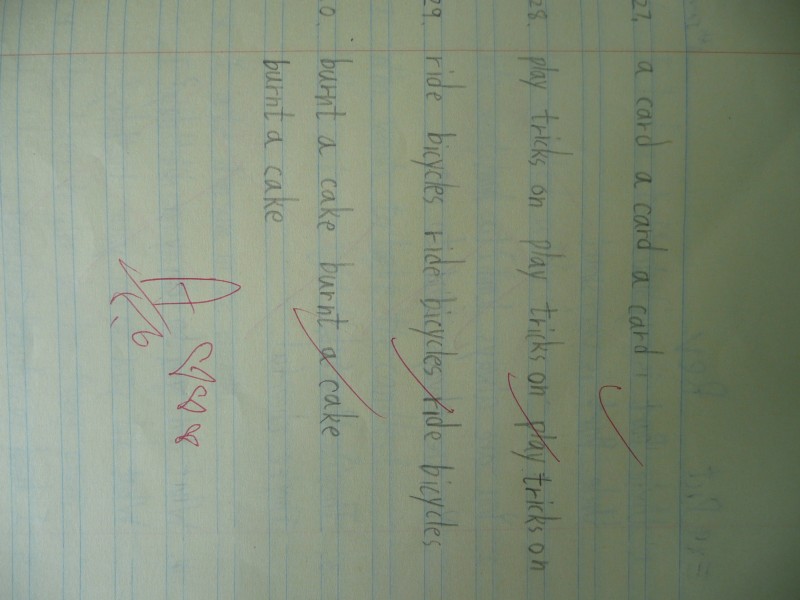 27. a card a card a card
28. play tricks on play tricks on play tricks on
29. ride bicycles ride bicycles ride bicycles
0. burnt a cake burnt a cake
burnt a cake
A